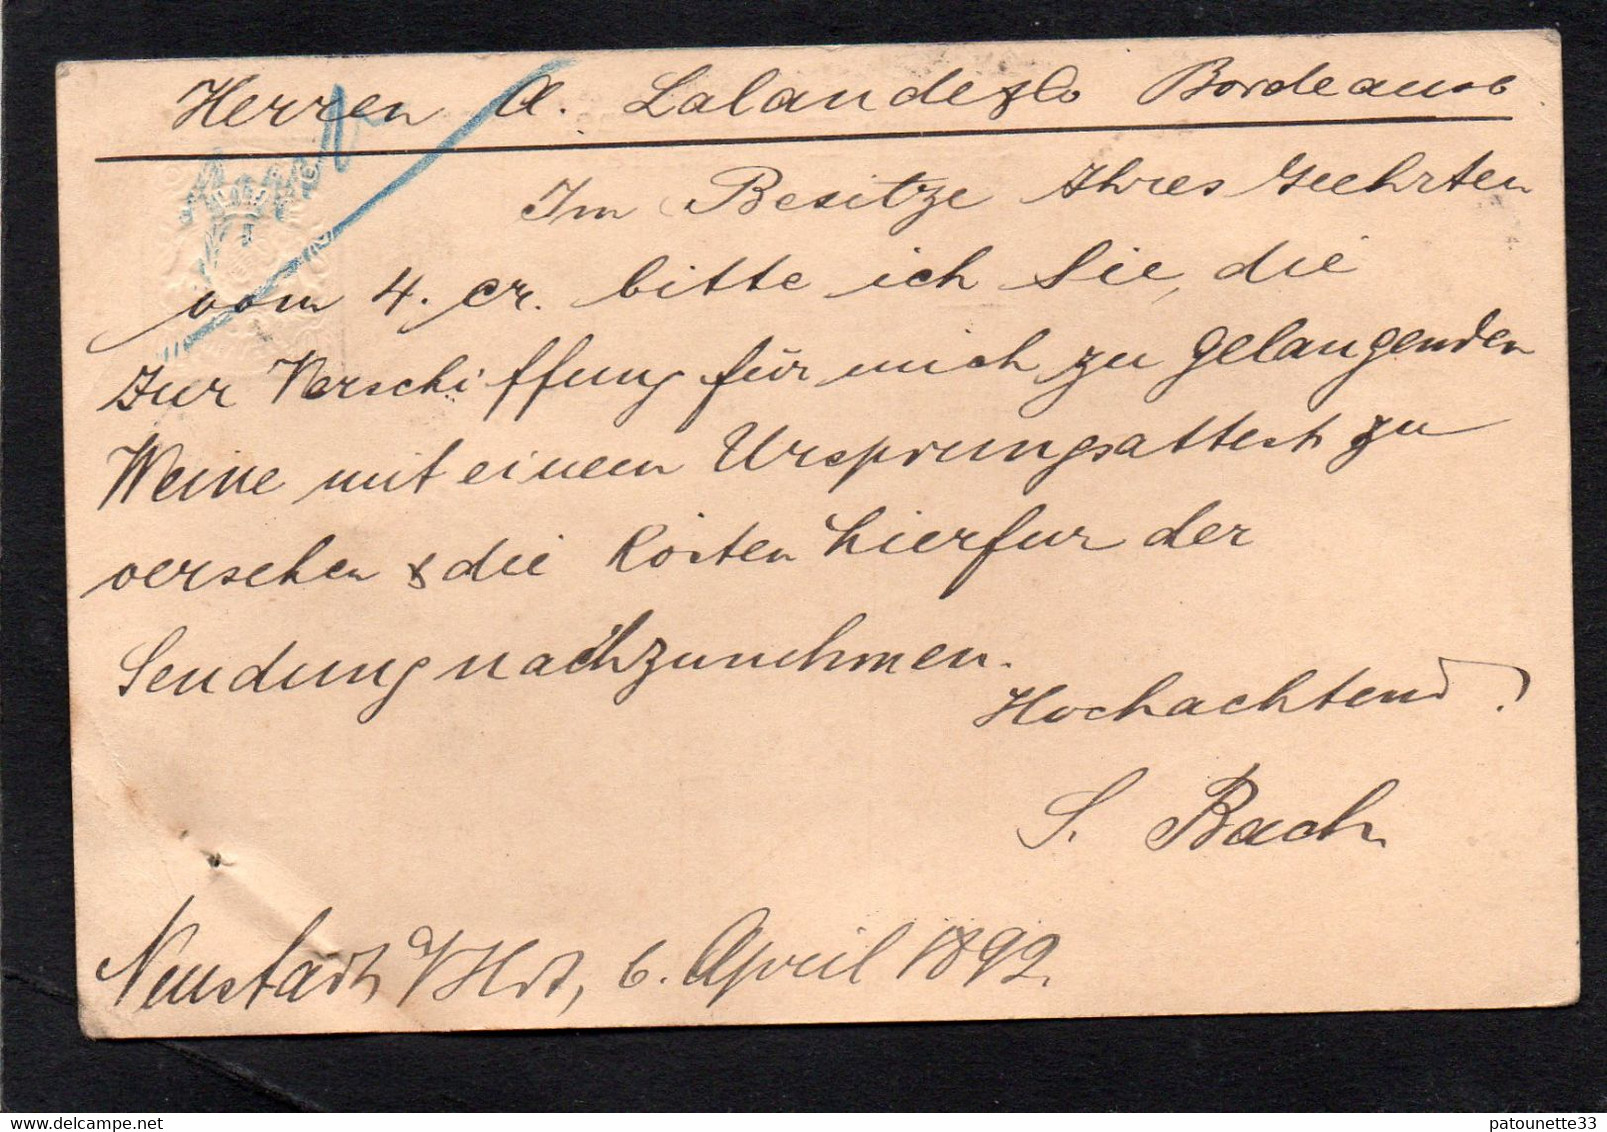 Herren A. Lalande & Co Bordeaux
Im Besitze Ihres Geehrten
vom 4. cr. bitte ich Sie, die
zur Verschiffung für mich zu gelangenden
Weine mit einem Ursprungsattest zu
versehen & die Kosten hierfür der
Sendung nachzunehmen.
Hochachtend
S. Bach
Neustadt a/Hdt, 6. April 1892.
patounette33